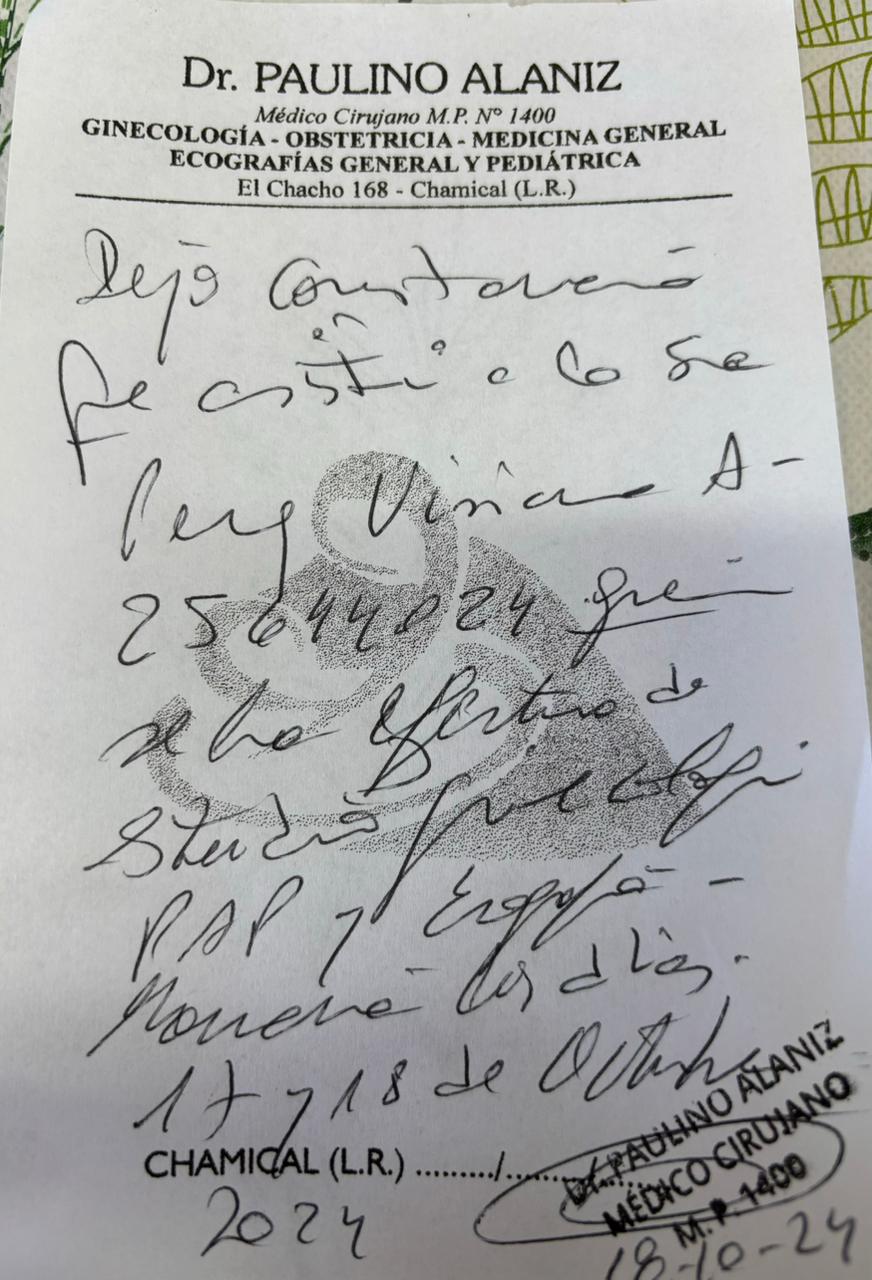 Dr. PAULINO ALANIZ
Médico Cirujano M.P. Nº 1400
GINECOLOGÍA - OBSTETRICIA - MEDICINA GENERAL
ECOGRAFÍAS GENERAL Y PEDIÁTRICA
El Chacho 168 - Chamical (L.R.)
Dejo Constancia
que asistí a la Sra
Viviana A-
25644024 quien
se ha efectuado
Estudio Ginecologi
PAP y Ecografía -
los días.
17 y 18 de Octubre
CHAMICAL (L.R.) ........./.........
2024
Dr. PAULINO ALANIZ
MÉDICO CIRUJANO
M.P. 1400
18-10-24